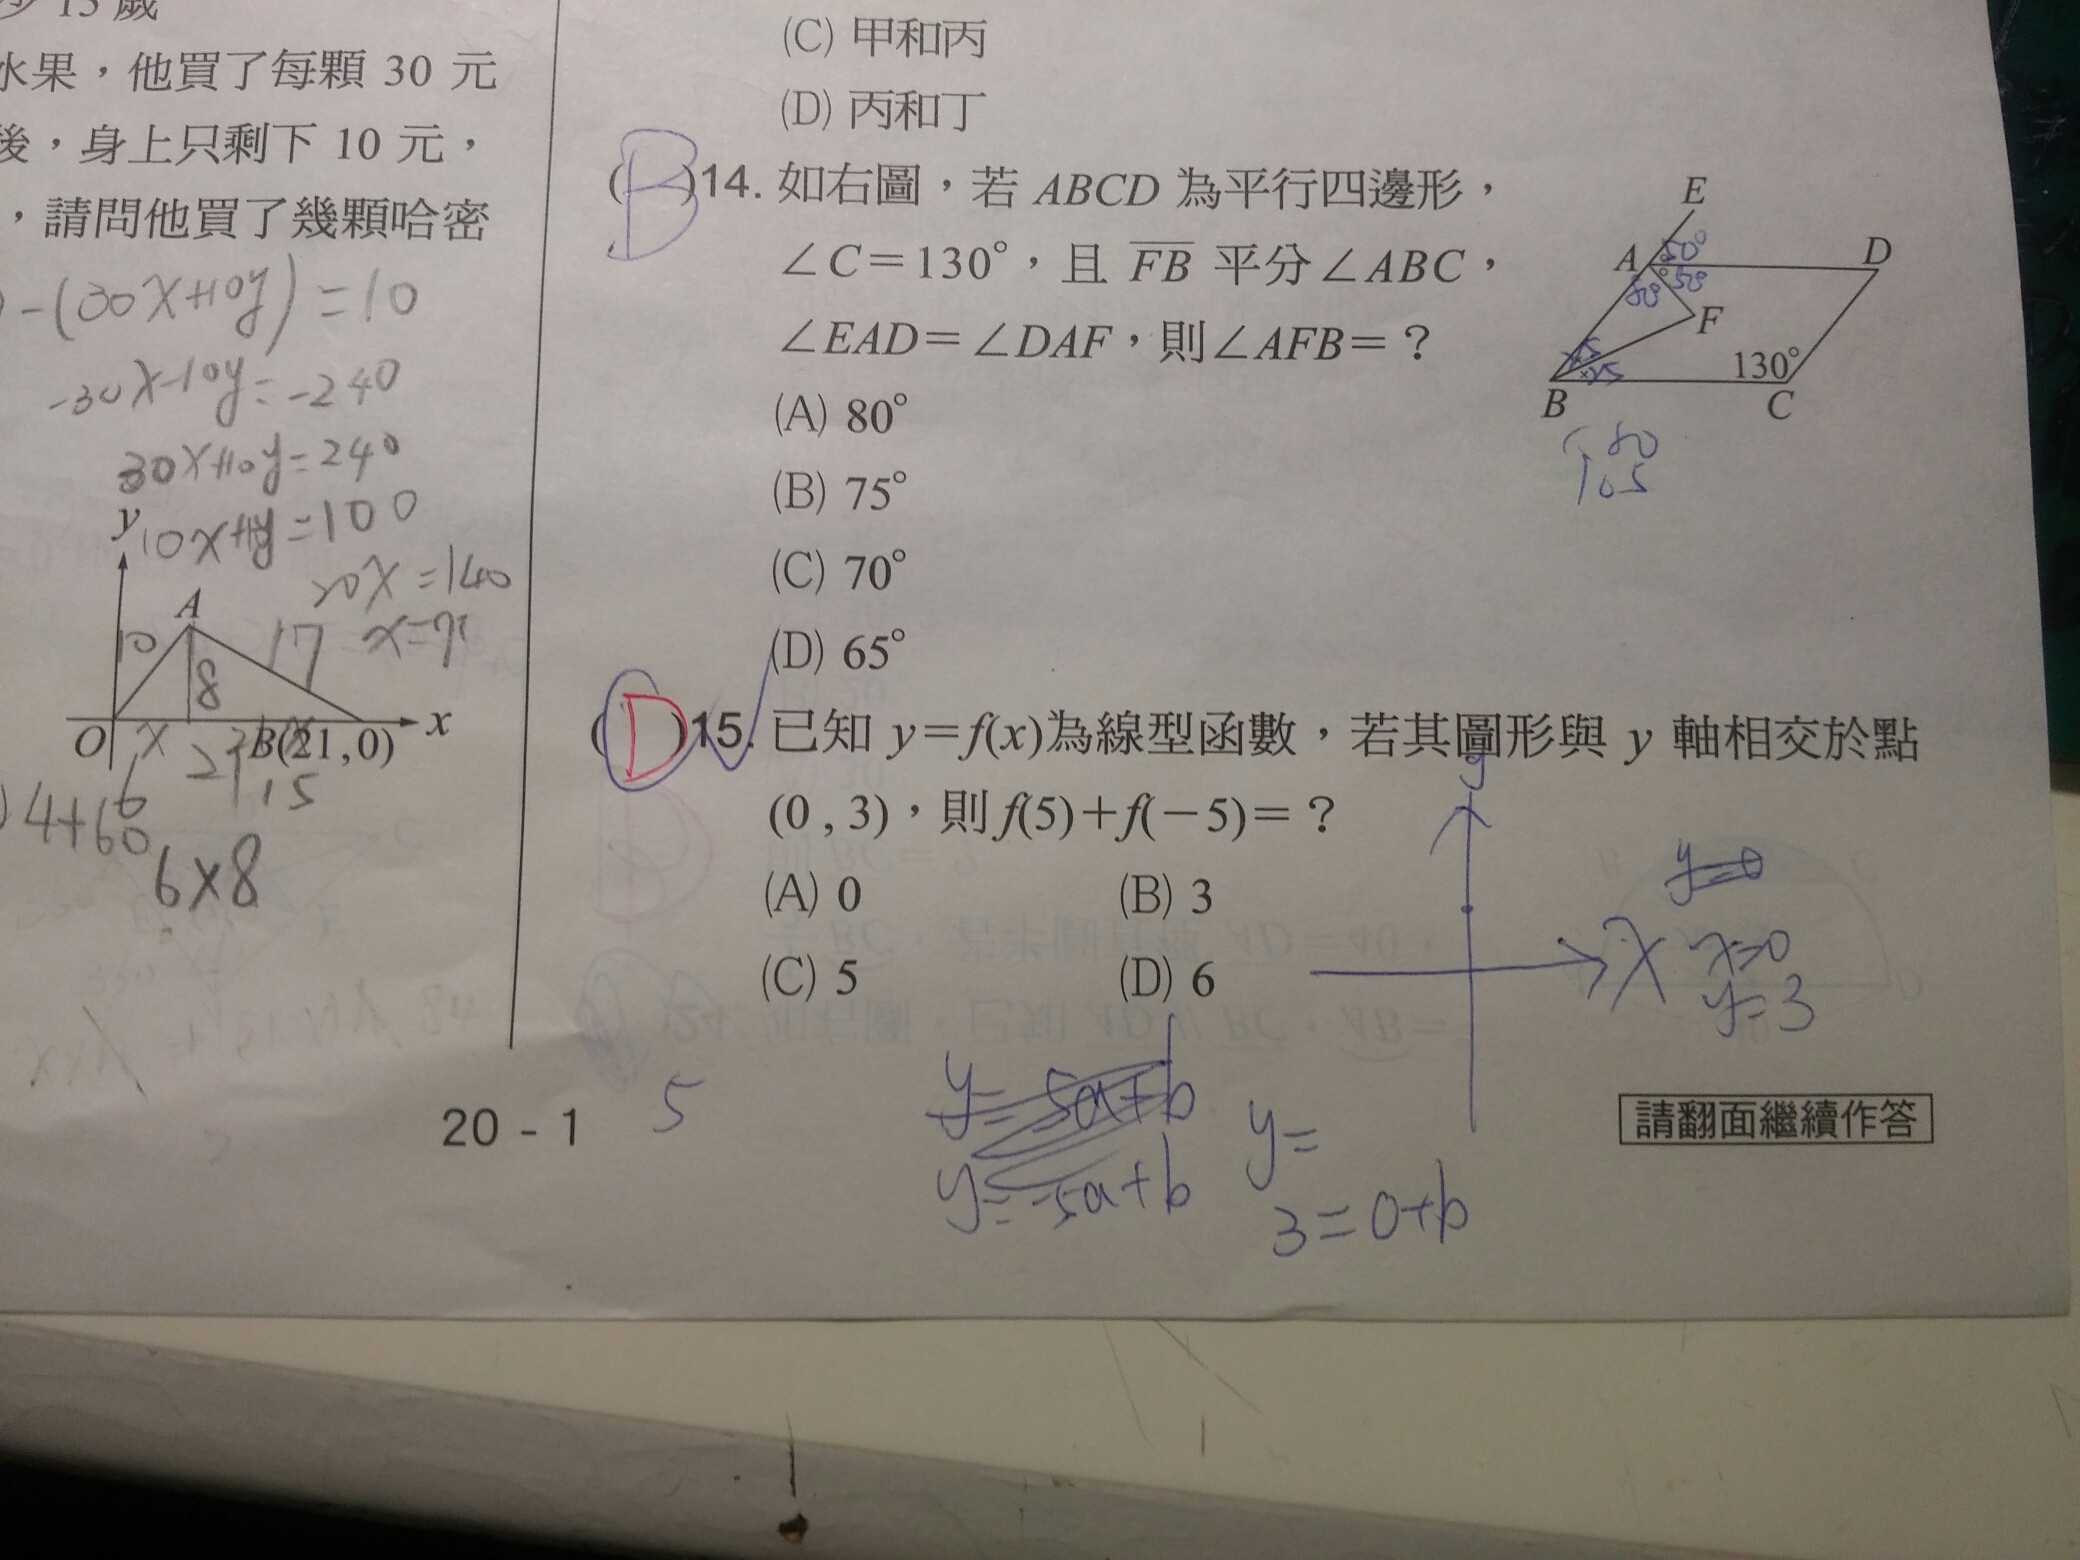 15 歲
水果，他買了每顆 30 元
後，身上只剩下 10 元，
，請問他買了幾顆哈密
-(30x+10y)=10
-30x-10y=-240
30x+10y=240
y
10x+10y=100
20x=140
x=7
A
10
17
8
O
x
21
B(21,0)
x
6
15
4+60
6×8
(C) 甲和丙
(D) 丙和丁
(B)14. 如右圖，若 ABCD 為平行四邊形，
∠C=130°，且 FB 平分∠ABC，
∠EAD=∠DAF，則∠AFB=？
(A) 80°
(B) 75°
(C) 70°
(D) 65°
E
A
50°
D
50
80
F
25
130°
B
C
180
105
(D)15. 已知 y=f(x)為線型函數，若其圖形與 y 軸相交於點
(0 , 3)，則 f(5)+f(−5)=？
(A) 0
(B) 3
(C) 5
(D) 6
y
x
y=0
x=0
y=3
20 - 1
5
y=5a+b
y=-5a+b
y=
3=0+b
請翻面繼續作答